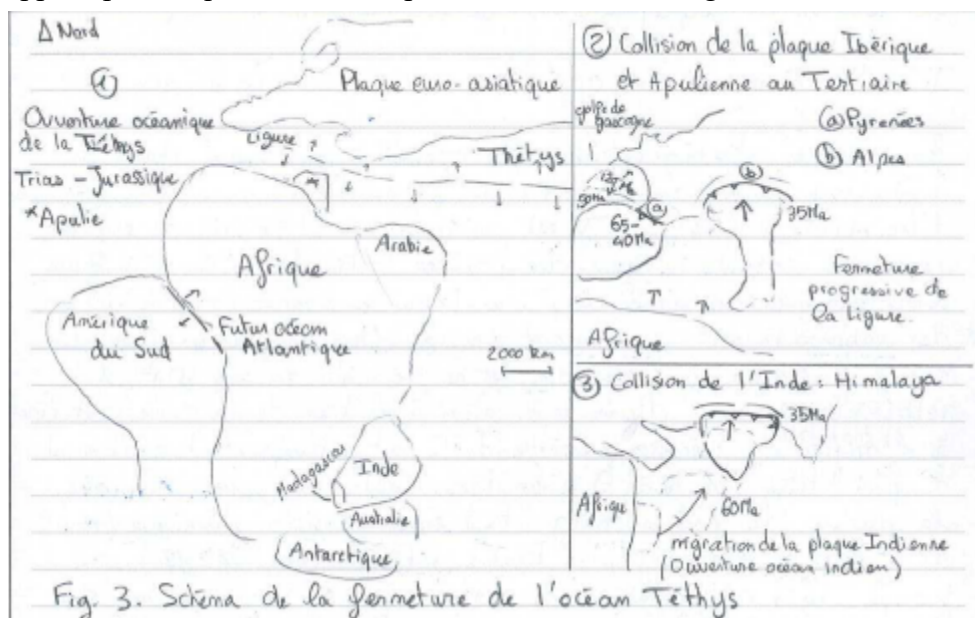 Δ Nord
①
Ouverture océanique
de la Téthys
Trias - Jurassique
*Apulie
Plaque euro-asiatique
Ligure
Thétys
*
Afrique
Arabie
Amérique
du Sud
Futur océan
Atlantique
2000 km
Madagascar
Inde
Australie
Antarctique
② Collision de la plaque Ibérique
et Apulienne au Tertiaire
golfe de
gascogne
ⓐ Pyrenées
ⓑ Alpes
50Ma
ⓐ
65-
40Ma
ⓑ
35Ma
Fermeture
progressive de
la ligure.
Afrique
③ Collision de l'Inde : Himalaya
35Ma
Afrique
60Ma
migration de la plaque Indienne
(Ouverture océan indien)
Fig. 3. Schéma de la fermeture de l'océan Téthys